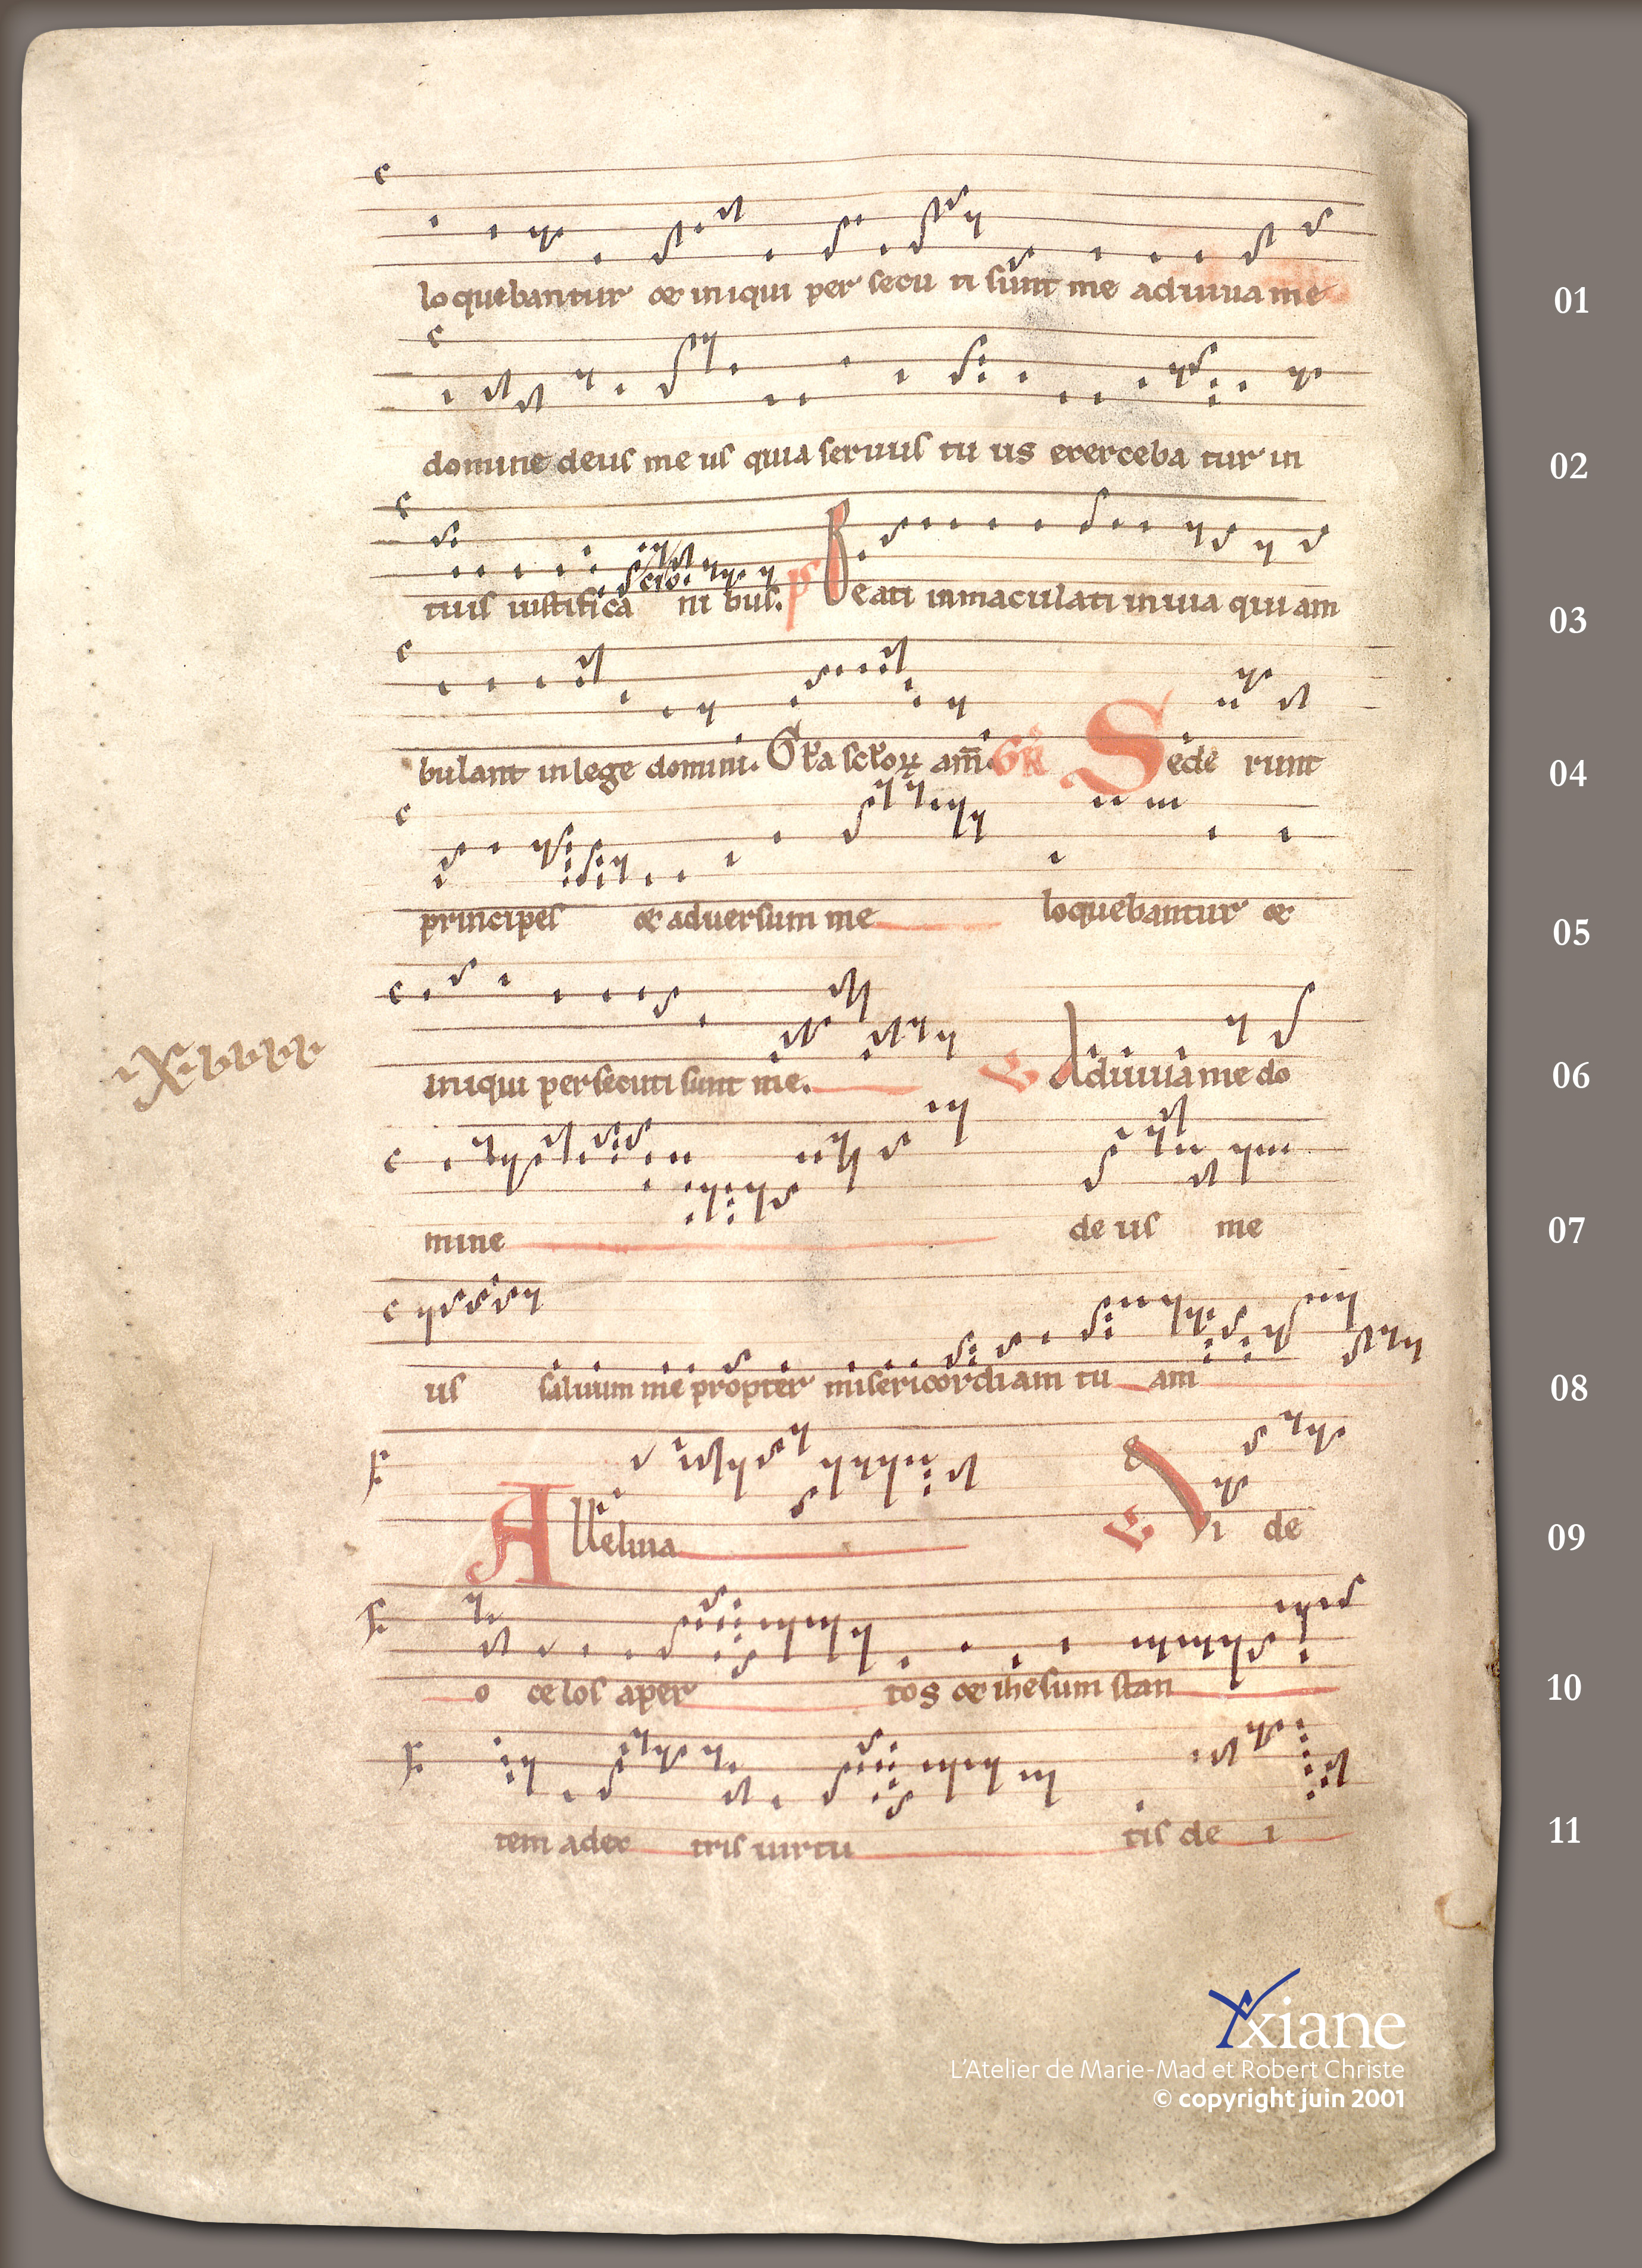 loquebantur & iniqui per secu ti sunt me adiuua me 01
domine deus me us quia seruus tu us exerceba tur in 02
tuis iustifica cio ni bus. ps Beati inmaculati in uia qui am 03
bulant in lege domini. Gl'a sc'lor am̄. GR Sede runt 04
principes & aduersum me loquebantur & 05
iniqui persecuti sunt me. Adiuua me do 06
mine de us me 07
us saluum me propter misericordiam tu am 08
Alleluia Vi de 09
o celos aper tos & ihesum stan 10
tem adex tris uirtu tis de i 11
xiane
L'Atelier de Marie-Mad et Robert Christe
© copyright juin 2001